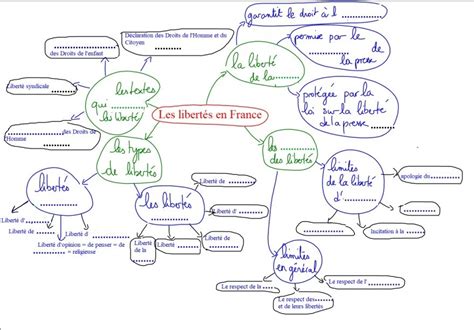 garantit le droit à l ............
Déclaration des Droits de l'Homme et du
Citoyen ............
............
des Droits de l'enfant
permise par le
............ de
la presse
la liberté
de la............
Liberté syndicale ............
les textes
qui ............
les liberté
protégée par la
loi sur la liberté
de la presse............
Les libertés en France
............ des Droits de
Homme
les types
de libertés
les ............
des libertés
limites
de la liberté
d'............
apologie du............
libertés
............
Liberté de ............
les libertés
............
............
Incitation à la ............
Liberté d' ............
Liberté d' ............
Liberté d'opinion = de penser = de
............ = religieuse
Liberté
de la ............
Liberté ............
Liberté de ............
limites
en général
Le respect de la ............
Le respect de l' ............
Le respect des............
et de leurs libertés